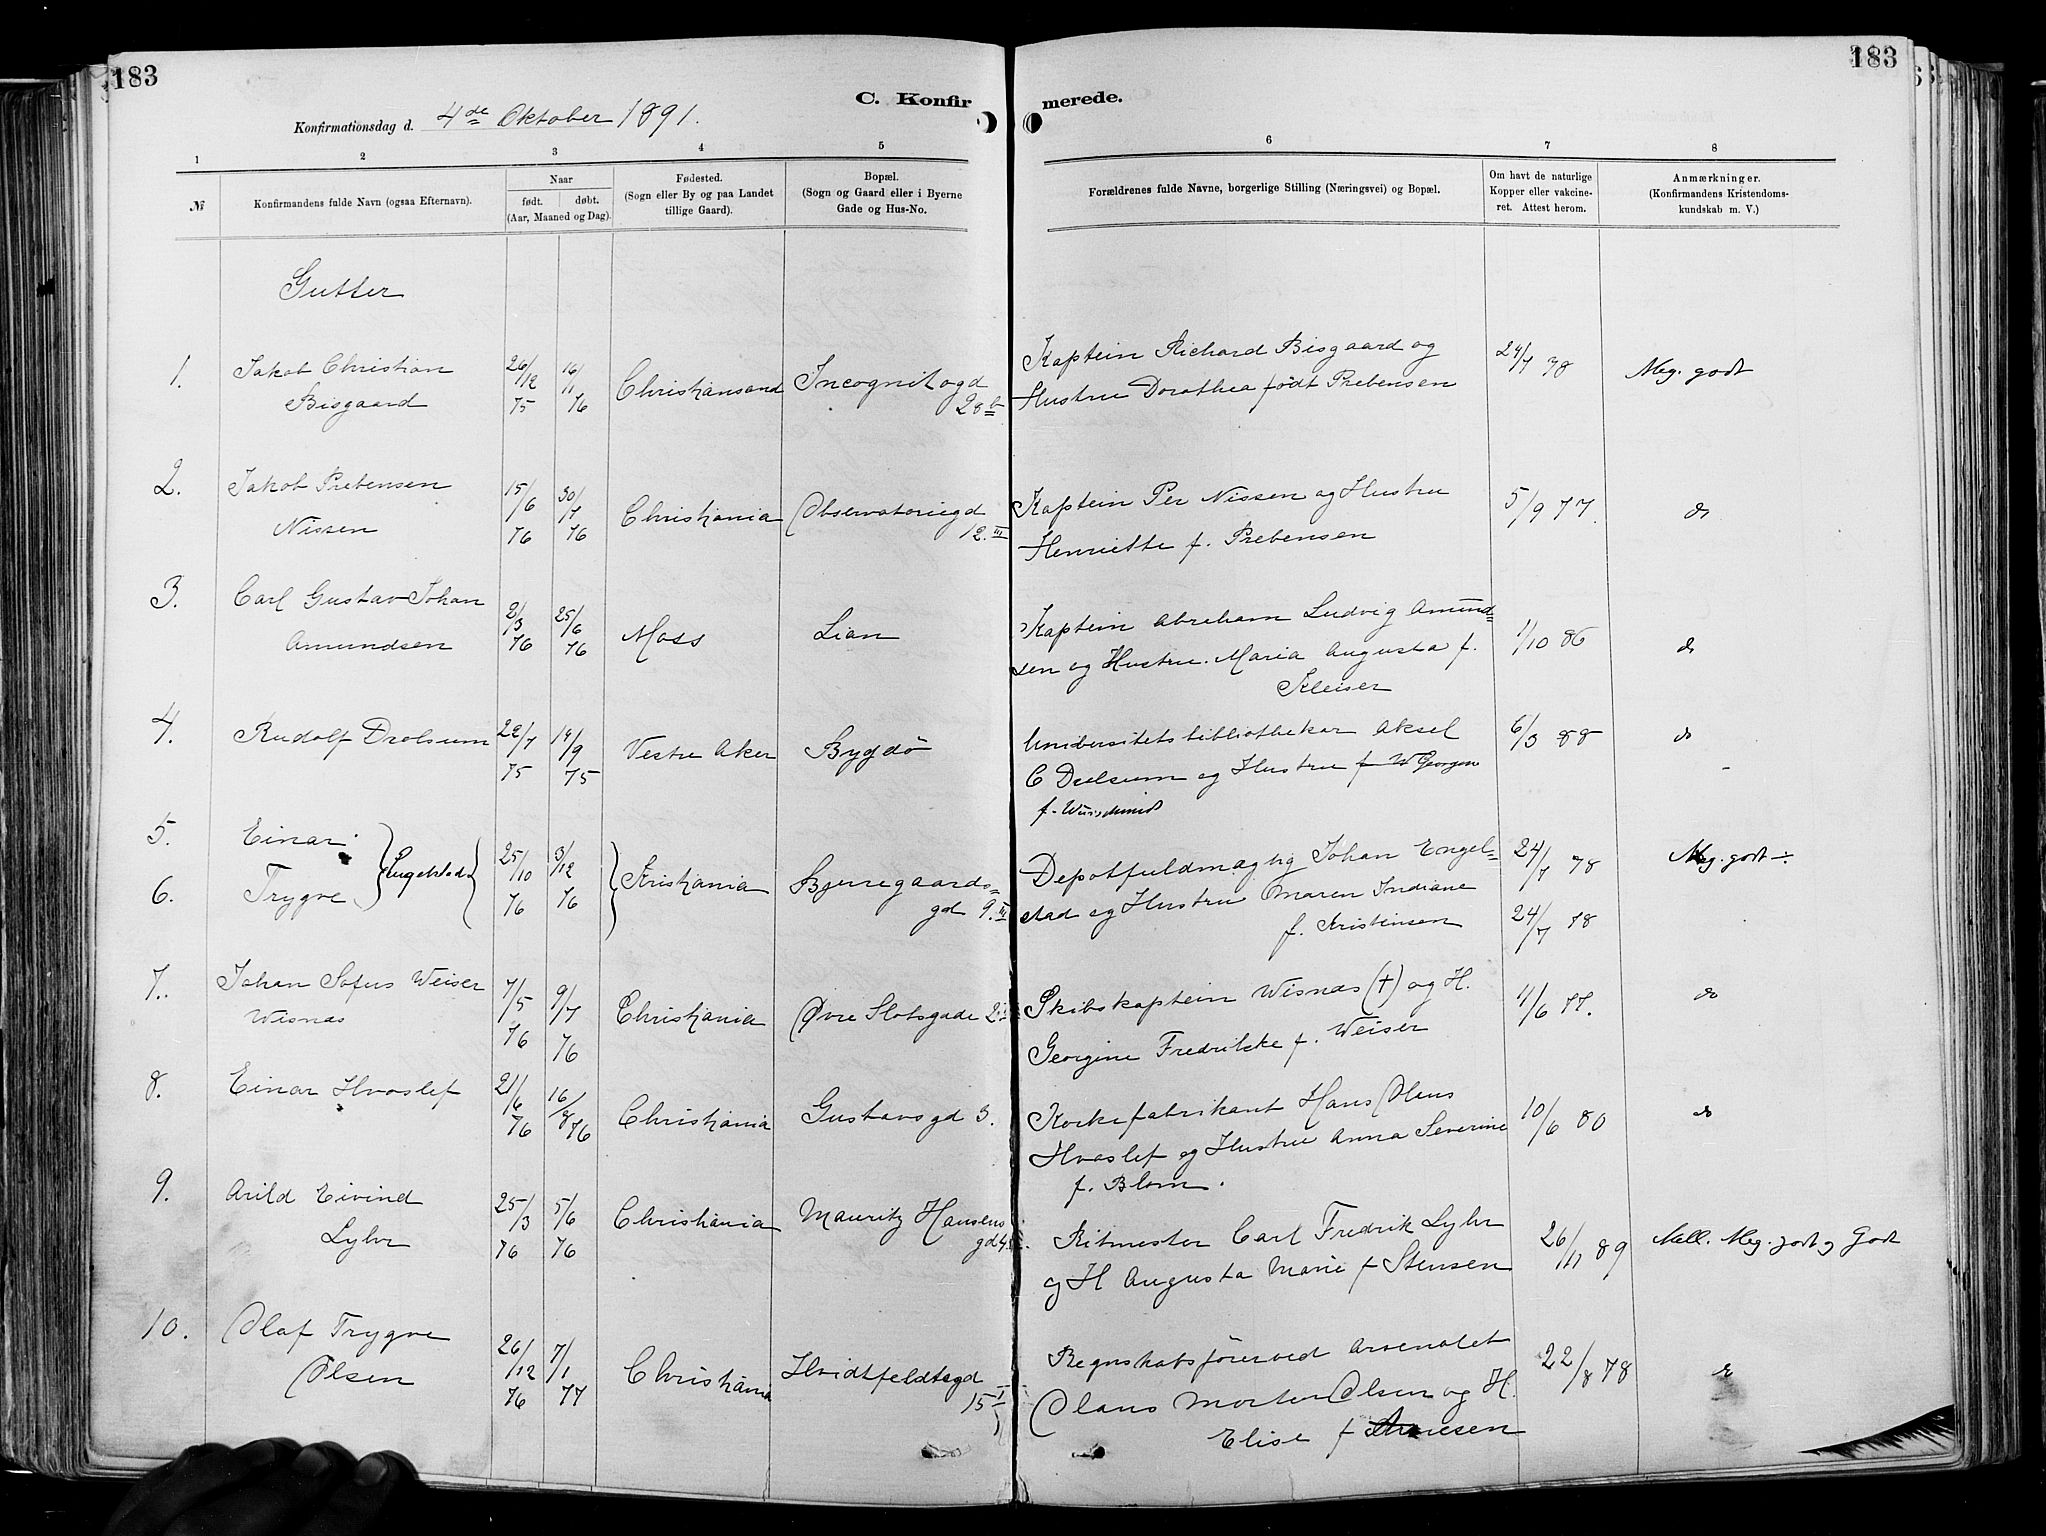 183
183
C. Konfir merede.
Konfirmationsdag d. 4de Oktober 1891.
1 2 3 4 5 6 7 8
№
Konfirmandens fulde Navn (ogsaa Efternavn).
Naar
født. døbt.
(Aar, Maaned og Dag).
Fødested.
(Sogn eller By og paa Landet
tillige Gaard).
Bopæl.
(Sogn og Gaard eller i Byerne
Gade og Hus-No.
Forældrenes fulde Navne, borgerlige Stilling (Næringsvei) og Bopæl.
Om havt de naturlige
Kopper eller vakcine-
ret. Attest herom.
Anmærkninger.
(Konfirmandens Kristendoms-
kundskab m. V.)
Gutter
1. Jakob Christian 26/12 16/11 Christiansand Incognitogd Kaptein Richard Bisgaard og 24/7 78 Meg. godt
Bisgaard 75 76 28 b Hustru Dorothea født Prebensen
2. Jakob Prebensen 15/6 30/7 Christiania Observatoriegd Kaptein Per Nissen og Hustru 5/9 77. do
Nissen 76 76 12. III Henriette f. Prebensen
3. Carl Gustav Johan 2/3 25/6 Moss Lian Kaptein Abraham Ludvig Amund= 1/10 86 do
Amundsen 76 76 sen og Hustru Maria Augusta f.
Kleiser
4. Rudolf Drolsum 22/7 14/9 Vestre Aker Bygdö Universitetsbibliothekar Aksel 6/3 88 do
75 75 C Drolsum og Hustru f W Georgen
5. Einar 25/10 3/12 Kristiania Bjerregaards= Depotfuldmægtig Johan Engel= 24/7 78 Meg. godt ÷
6. Trygve Engelstad 76 76 gd 9. III stad og Hustru Maren Indiane 24/7 78
f. Kristensen
7. Johan Sofus Weiser 7/5 9/7 Christiania Øvre Slotsgade 2 Skibskaptein Wisnæs (+) og H. 4/6 77. do
Wisnæs 76 76 Georgine Fredrikke f. Weiser
8. Einar Hvoslef 21/6 16/8 Christiania Gustavsgd 3. Korkefabrikant Hans Olaus 10/6 80 do
76 76 Hvoslef og Hustru Anna Severine
f. Blom.
9. Arild Eivind 25/3 5/6 Christiania Mauritz Hansens Ritmester Carl Fredrik Lyhr 26/11 89 Mell. Meg. godt og Godt
Lyhr 76 76 gd 4. og H Augusta Marie f Stensen
10. Olaf Trygve 26/12 7/1 Christiania Hvidtfeldtsgd Regnskabsfører ved Arsenalet 22/8 78 do
Olsen 76 77 15 I Olaus Morten Olsen og H.
Elise f